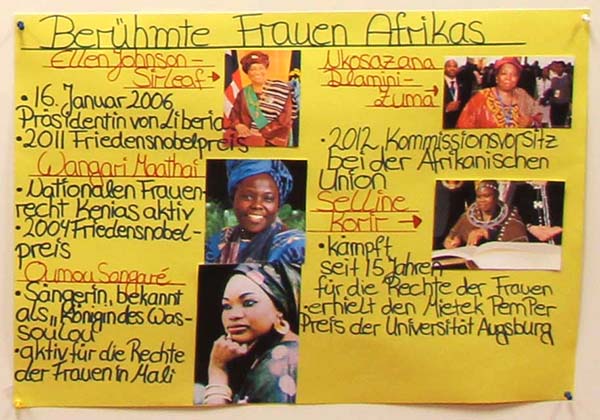 Berühmte Frauen Afrikas
Ellen Johnson-
Sirleaf →
• 16. Januar 2006
Präsidentin von Liberia
• 2011 Friedensnobelpreis
Wangari Maathai
• Nationalen Frauen-
recht Kenias aktiv
• 2004 Friedensnobel-
preis
Oumou Sangaré
• Sängerin, bekannt
als „Königin des Was-
soulou"
• aktiv für die Rechte
der Frauen in Mali
Nkosazana
Dlamini-
Zuma →
• 2012, Kommissionsvorsitz
bei der Afrikanischen
Union
Selline
Korir →
• kämpft
seit 15 Jahren
für die Rechte der Frauen
• erhielt den Mietek Pemper
Preis der Universität Augsburg